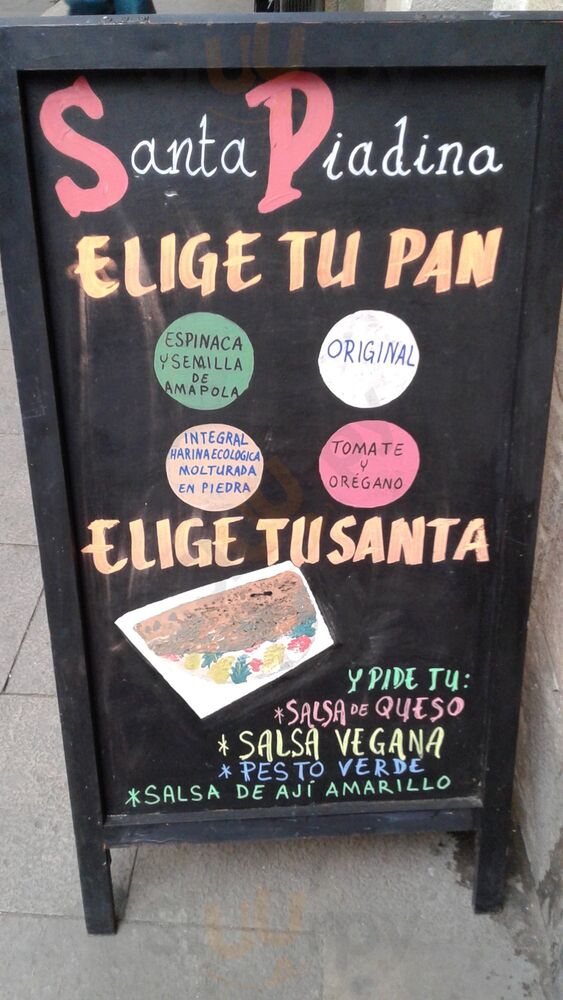 Santa Piadina
ELIGE TU PAN
ESPINACA
Y SEMILLA
DE
AMAPOLA
ORIGINAL
INTEGRAL
HARINA ECOLOGICA
MOLTURADA
EN PIEDRA
TOMATE
Y
ORÉGANO
ELIGE TU SANTA
Y PIDE TU:
*SALSA DE QUESO
* SALSA VEGANA
* PESTO VERDE
*SALSA DE AJÍ AMARILLO